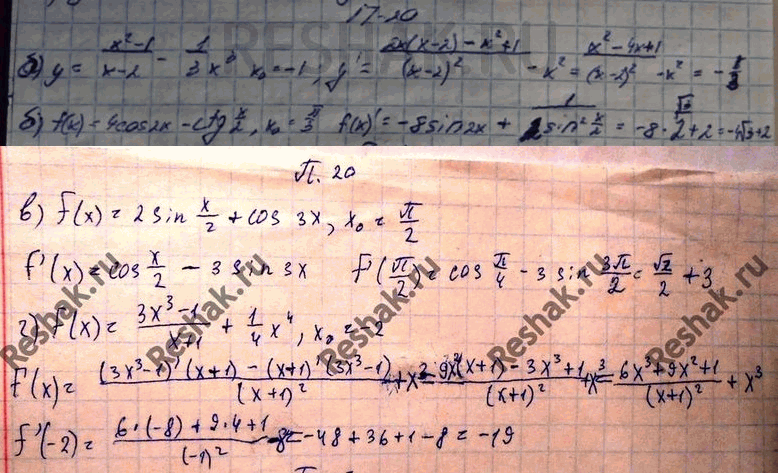 17-20
б) y = (x²-1)/(x-2) - 1/3 x³, x₀ = -1, y' = (2x(x-2) - x² + 1)/(x-2)² - x² = (x²-4x+1)/(x-2)² - x² = -1/3
б) f(x) = 4cos2x - ctg x/2, x₀ = π/3 f(x)' = -8sin2x + 1/(2sin² x/2) = -8·√3/2 + 2 = -4√3+2
П. 20
в) f(x) = 2 sin x/2 + cos 3x, x₀ = π/2
f'(x) = cos x/2 - 3 sin 3x f'(π/2) = cos π/4 - 3 sin 3π/2 = √2/2 + 3
г) f(x) = (3x³-1)/(x+1) + 1/4 x⁴, x₀ = -2
f'(x) = ((3x³-1)'(x+1) - (x+1)'(3x³-1))/(x+1)² + x³ = (9x²(x+1) - 3x³+1)/(x+1)² + x³ = (6x³+9x²+1)/(x+1)² + x³
f'(-2) = (6·(-8) + 9·4+1)/(-1)² - 8 = -48+36+1-8 = -19
RESHAK.RU
Reshak.ru
Reshak.ru
Reshak.ru